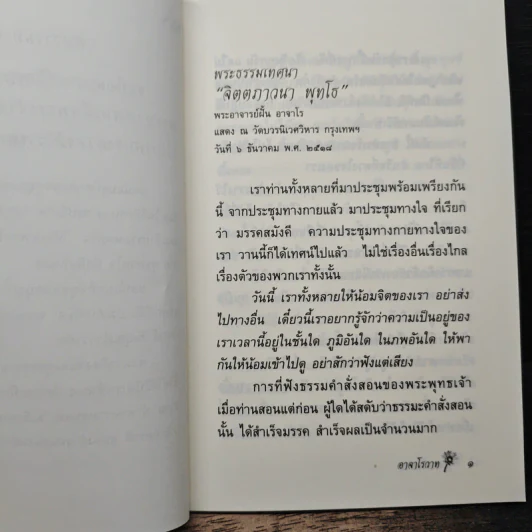 พระธรรมเทศนา
“จิตตภาวนา พุทโธ”
พระอาจารย์ฝั้น อาจาโร
แสดง ณ วัดบวรนิเวศวิหาร กรุงเทพฯ
วันที่ ๖ ธันวาคม พ.ศ. ๒๕๑๘
เราท่านทั้งหลายที่มาประชุมพร้อมเพรียงกัน
นี้ จากประชุมทางกายแล้ว มาประชุมทางใจ ที่เรียก
ว่า มรรคสมังคี ความประชุมทางกายทางใจของ
เรา วานนี้ก็ได้เทศน์ไปแล้ว ไม่ใช่เรื่องอื่นเรื่องไกล
เรื่องตัวของพวกเราทั้งนั้น
วันนี้ เราทั้งหลายให้น้อมจิตของเรา อย่าส่ง
ไปทางอื่น เดี๋ยวนี้เราอยากรู้จักว่าความเป็นอยู่ของ
เราเวลานี้อยู่ในชั้นใด ภูมิอันใด ในภพอันใด ให้พา
กันให้น้อมเข้าไปดู อย่าสักว่าฟังแต่เสียง
การที่ฟังธรรมคำสั่งสอนของพระพุทธเจ้า
เมื่อท่านสอนแต่ก่อน ผู้ใดได้สดับว่าธรรมะคำสั่งสอน
นั้น ได้สำเร็จมรรค สำเร็จผลเป็นจำนวนมาก
อาจาโรวาท ๑